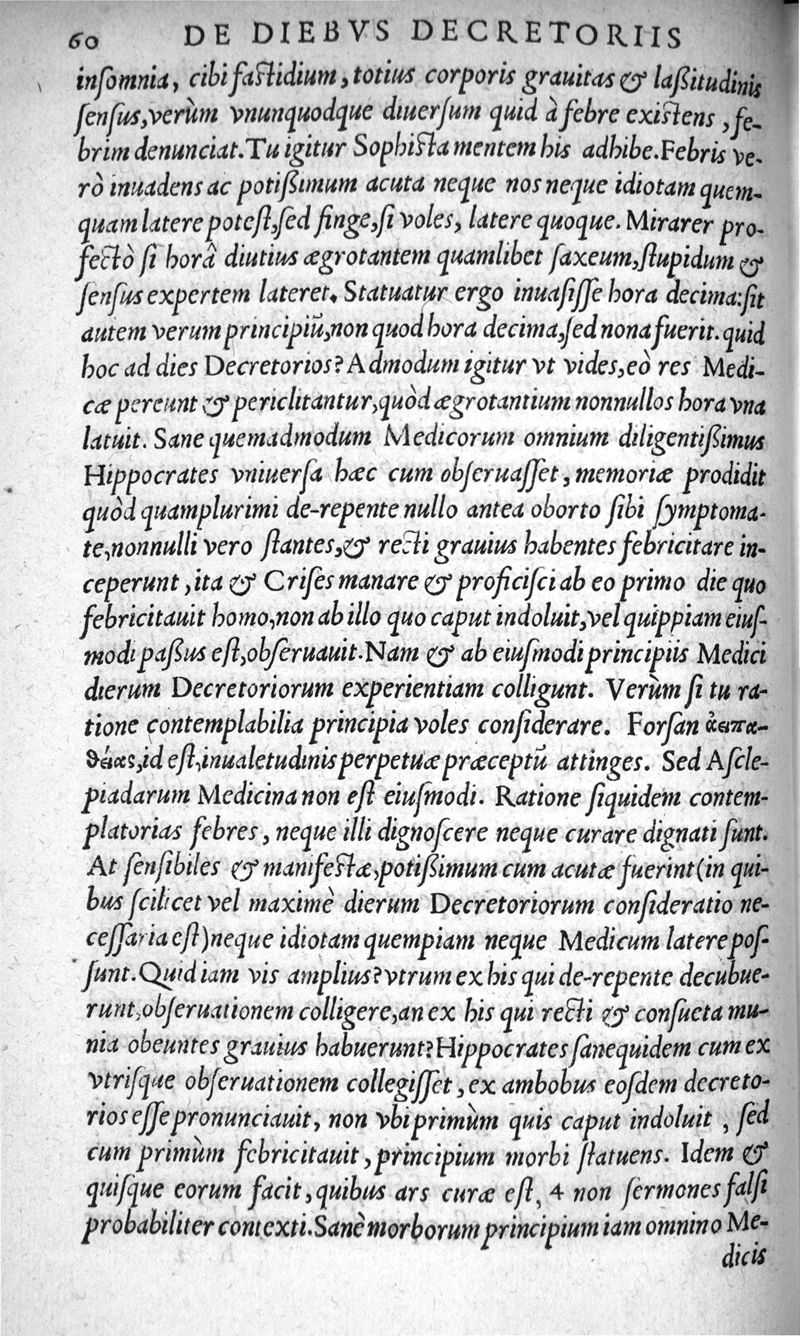 60 DE DIEBVS DECRETORIIS
inſomnia, cibi faſtidium, totius corporis grauitas & laßitudinis
ſenſus,verùm vnunquodque diuerſum quid à febre exiſtens, fe-
brim denunciat.Tu igitur Sophiſta mentem his adhibe.Febris ve-
rò inuadens ac potißimum acuta neque nos neque idiotam quem-
quam latere poteſt,ſed finge,ſi voles, latere quoque. Mirarer pro-
fectò ſi horâ diutius ægrotantem quamlibet ſaxeum,ſtupidum &
ſenſus expertem lateret. Statuatur ergo inuaſiſſe hora decima:ſit
autem verum principiũ,non quod hora decima,ſed nona fuerit.quid
hoc ad dies Decretorios? Admodum igitur vt vides,eò res Medi-
cæ pereunt & periclitantur,quòd ægrotantium nonnullos hora vna
latuit. Sane quemadmodum Medicorum omnium diligentißimus
Hippocrates vniuerſa hæc cum obſeruaſſet, memoriæ prodidit
quòd quamplurimi de-repente nullo antea oborto ſibi ſymptoma-
te,nonnulli vero ſtantes,& recti grauius habentes febricitare in-
ceperunt, ita & Criſes manare & proficiſci ab eo primo die quo
febricitauit homo,non ab illo quo caput indoluit,vel quippiam eiuſ-
modi paßus eſt,obſeruauit.Nam & ab eiuſmodi principiis Medici
dierum Decretoriorum experientiam colligunt. Verùm ſi tu ra-
tione contemplabilia principia voles conſiderare. Forſan ἀειπα-
θείας,id eſt,inualetudinis perpetuæ præceptũ attinges. Sed Aſcle-
piadarum Medicina non eſt eiuſmodi. Ratione ſiquidem contem-
platorias febres, neque illi dignoſcere neque curare dignati ſunt.
At ſenſibiles & manifeſtæ,potißimum cum acutæ fuerint(in qui-
bus ſcilicet vel maximè dierum Decretoriorum conſideratio ne-
ceſſaria eſt)neque idiotam quempiam neque Medicum latere poſ-
ſunt.Quid iam vis amplius?vtrum ex his qui de-repente decubue-
runt,obſeruationem colligere,an ex his qui recti & conſueta mu-
nia obeuntes grauius habuerunt?Hippocrates ſanequidem cum ex
vtriſque obſeruationem collegiſſet, ex ambobus eoſdem decreto-
rios eſſe pronunciauit, non vbi primùm quis caput indoluit, ſed
cum primùm febricitauit, principium morbi ſtatuens. Idem &
quiſque eorum facit, quibus ars curæ eſt, 4 non ſermones falſi
probabiliter contexti.Sanè morborum principium iam omnino Me-
dicis